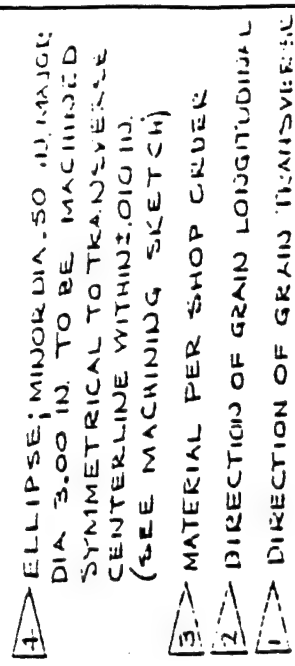 4 ELLIPSE; MINOR DIA .50 IN. MAJOR
DIA 3.00 IN. TO BE MACHINED
SYMMETRICAL TO TRANSVERSE
CENTERLINE WITHIN ±.010 IN.
(SEE MACHINING SKETCH)
3 MATERIAL PER SHOP ORDER
2 DIRECTION OF GRAIN LONGITUDINAL
1 DIRECTION OF GRAIN TRANSVERSAL